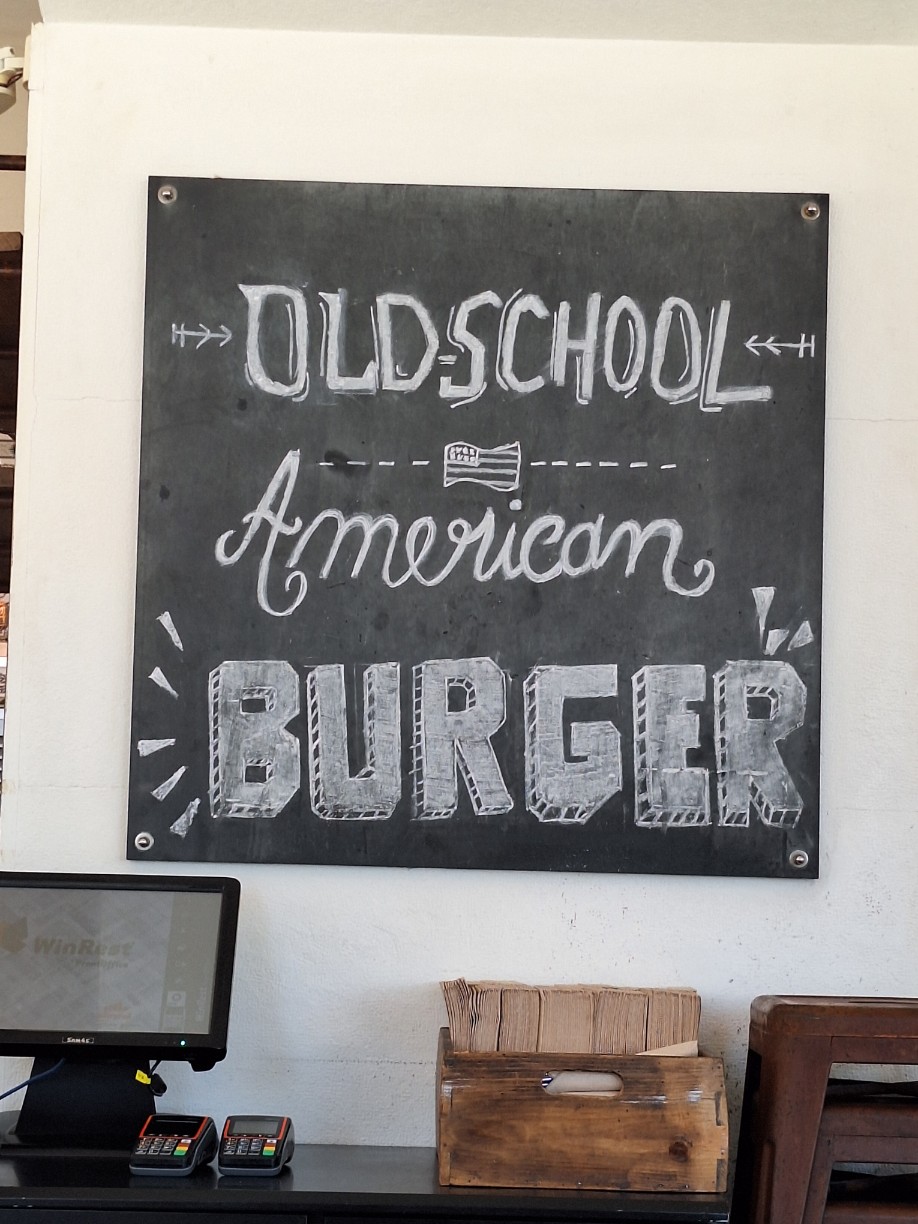 OLD-SCHOOL
American
BURGER
WinRest